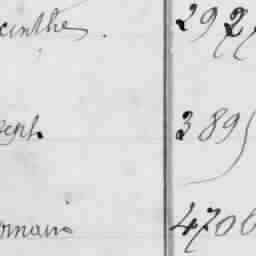 cinthe. 2927
seph. 3895
omain 4706